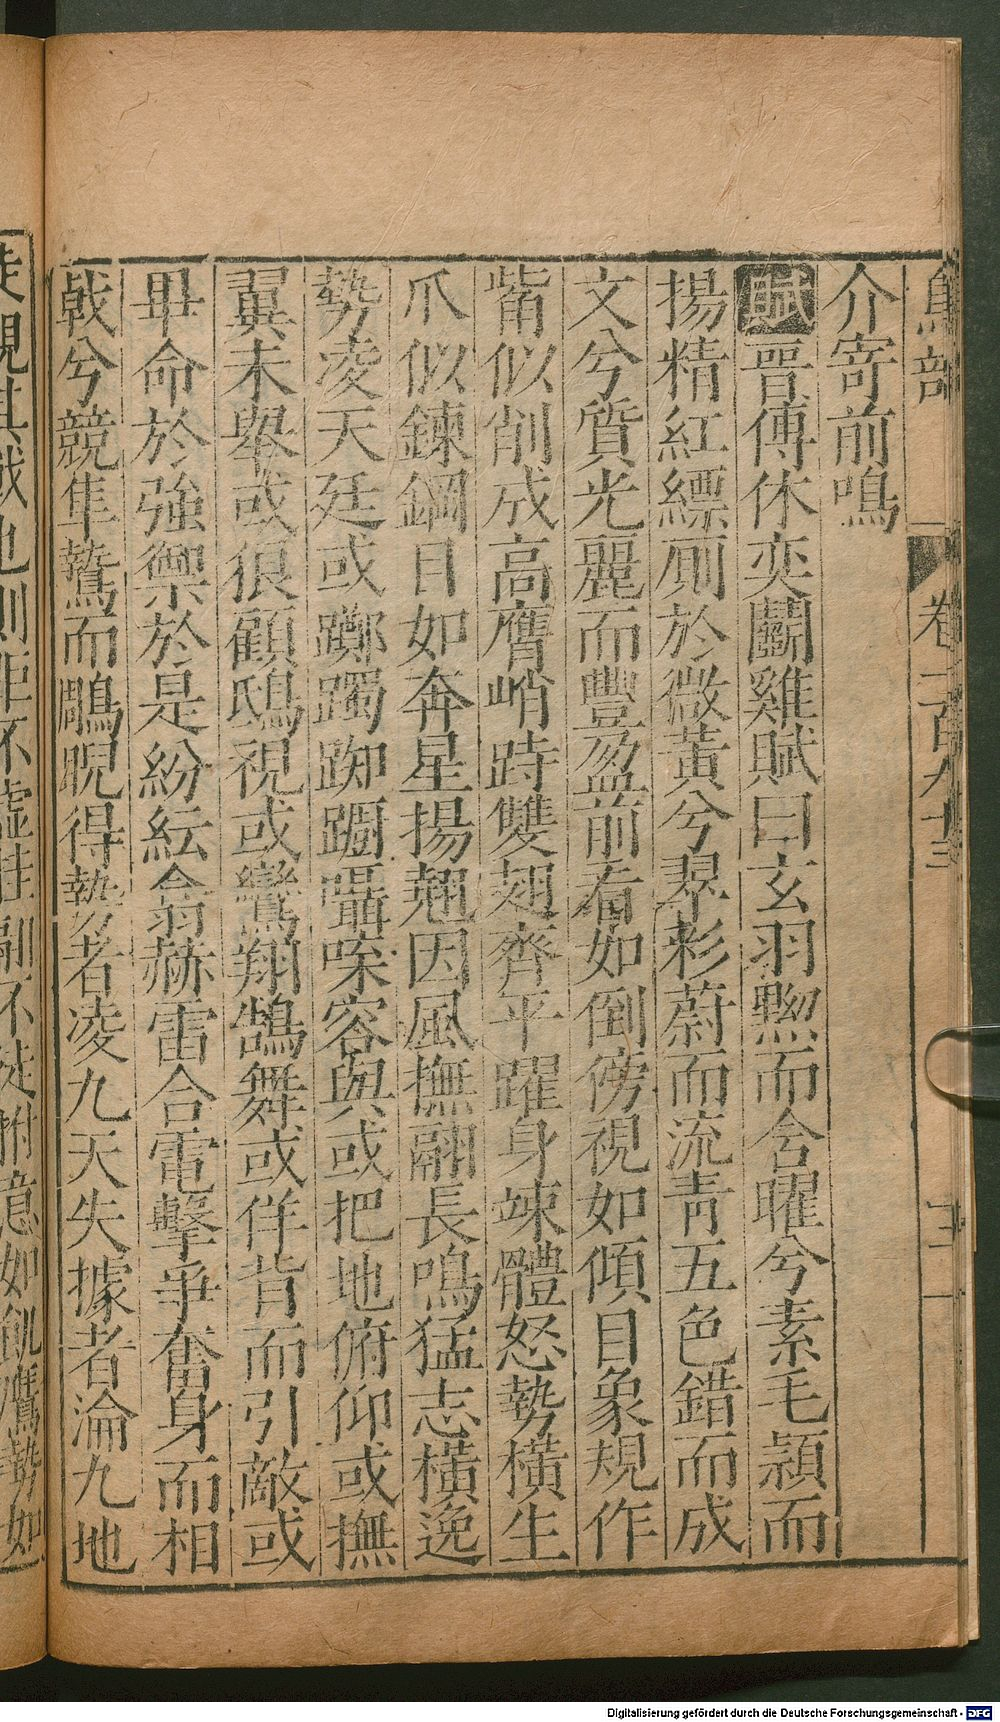 鳥部
卷一百九十三
介寄前鳴
賦晉傅休奕鬭雞賦曰玄羽黝而含曜兮素毛穎而
揚精紅縹厠於微黃兮翠彩蔚而流靑五色錯而成
文兮質光麗而豐盈前看如倒傍視如傾目象規作
觜似削成高膺峭跱雙翅齊平躍身竦體怒勢橫生
爪似鍊鋼目如奔星揚翹因風撫翮長鳴猛志橫逸
勢凌天廷或躑躅踟躕囁㗱容與或把地俯仰或撫
翼未舉或狼顧鴟視或鸞翔鵠舞或佯背而引敵或
畢命於強禦於是紛紜翕赫雷合電擊爭奮身而相
戟兮競隼鷙而鵰睨得勢者凌九天失據者淪九地
徒觀其戰也則距不虛挂翮不徒拊意如飢鷹勢如
Digitalisierung gefördert durch die Deutsche Forschungsgemeinschaft - DFG